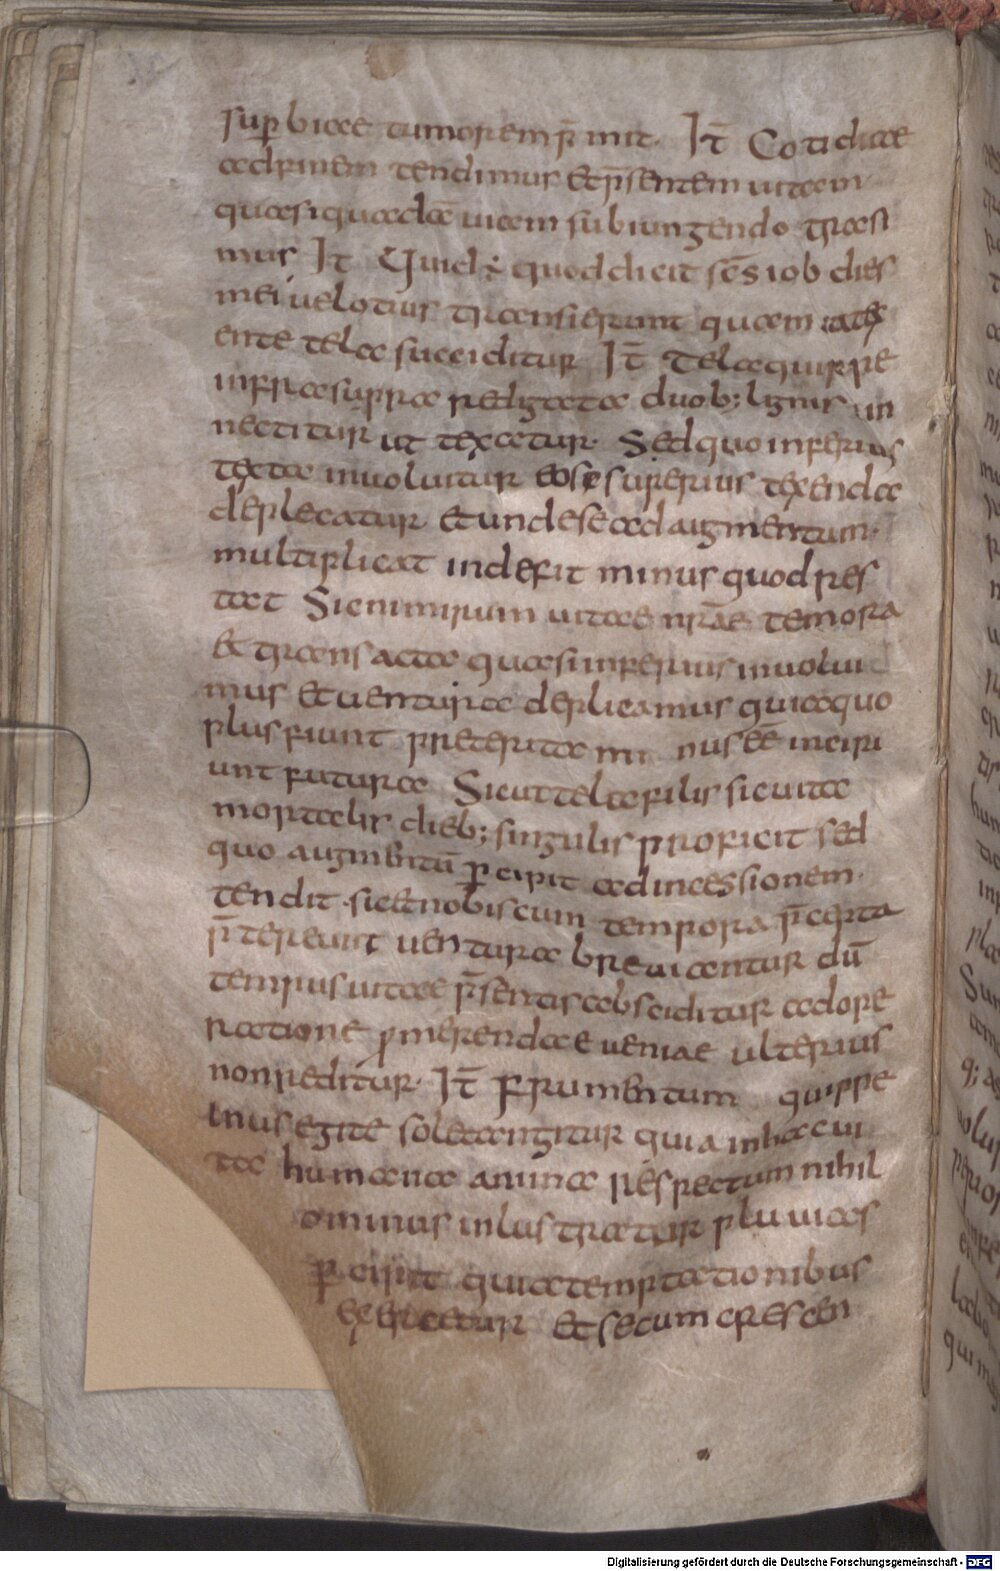 sup̱biae tumorem p̄mit. It̄ Cotidiae
ad finem tendimus et p̄sentem uitam
quasi quadā uiam subiungendo transi
mus It Quid ÷ quod dicit sc̄s iob dies
mei uelotius transierunt quam a tex
ente tela succiditur It̄ Tela quippe
infra supra redigata duob; lignis in
nectitur ut texatur. Sed quo inferius
texta inuoluitur eose superius texenda
deplecatur et unde se ad augmentum.
multiplicat inde fit minus quod res
tat Sic nimirum uitae nr̄ae temora
et transacta quasi inferius inuolui
mus et uentura deplicamus quia quo
plus fiunt preterita mi nus eē incipi
unt futura Sicut tela filis sic uita
mortalis dieb; singulis proficit sed
quo augmentū p̱cipit ad incessionem.
tendit. sic et nobiscum tempora p̄cepta
p̄tereunt uentura breuiantur dū
tempus uitae p̄sentis absciditur ad ope
ratione p̱merendae ueniae ulterius
non reditur. It̄ Frumentum quippe
inusegite solet angitur quia in hac ui
ta humana anima respectum nihil
ominus inlustratur pluuias
p̱cipit quia temptationibus
exerceetur et secum crescen
Digitalisierung gefördert durch die Deutsche Forschungsgemeinschaft - DFG